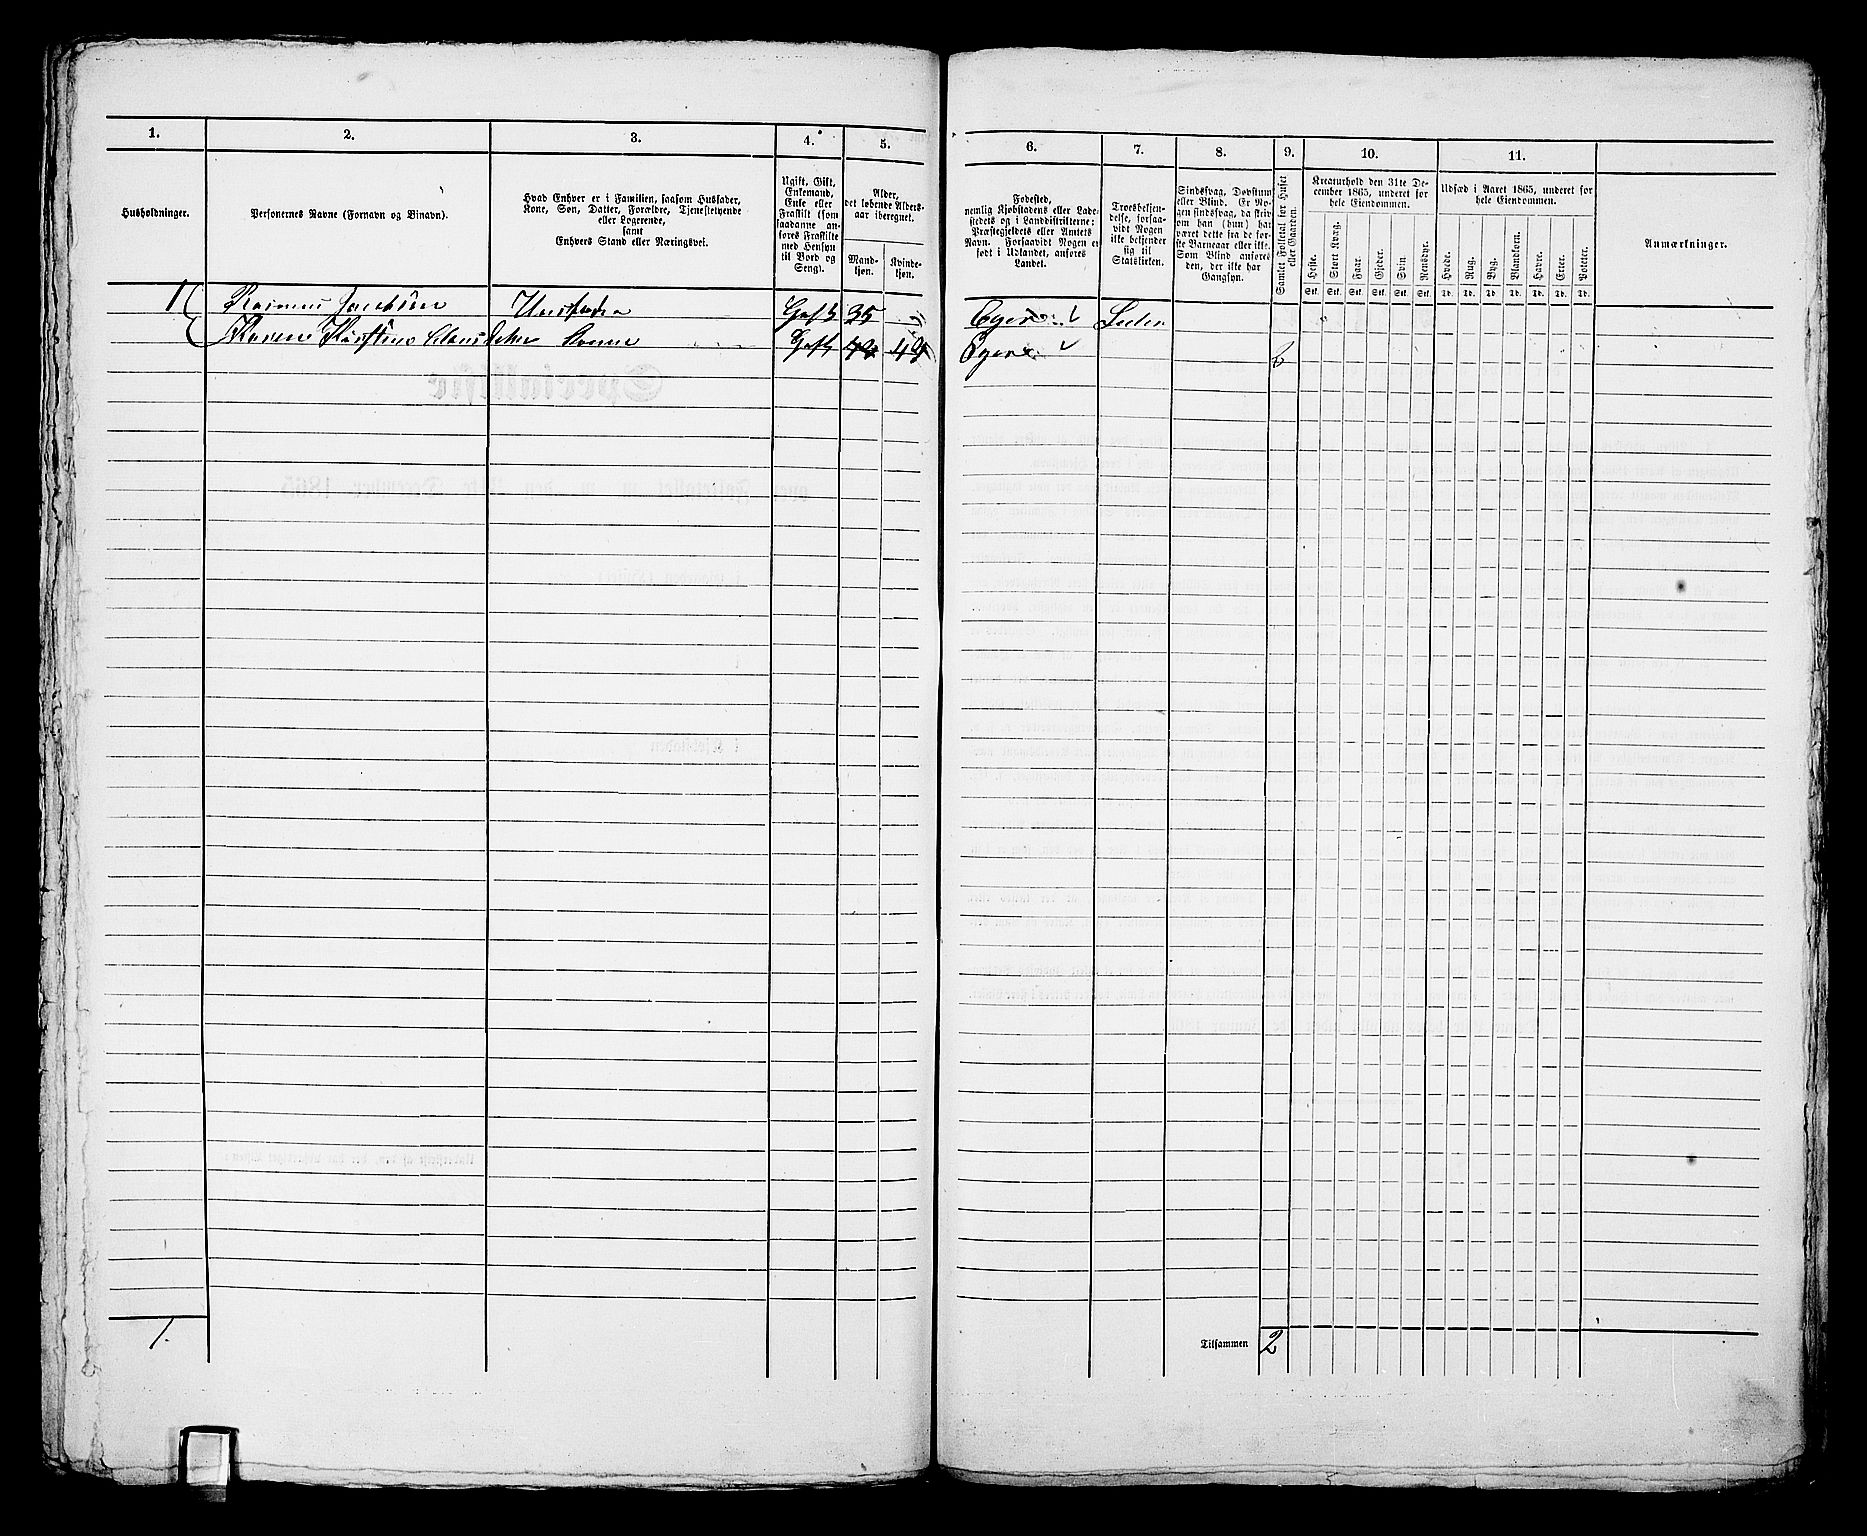 1. 2. 3. 4. 5. 6. 7. 8. 9. 10. 11.
Husholdninger.
Personernes Navne (Fornavn og Binavn).
Hvad Enhver er i Familien, saasom Husfader,
Kone, Søn, Datter, Forældre, Tjenestetyende
eller Logerende,
samt
Enhvers Stand eller Næringsvei.
Ugift, Gift,
Enkemand,
Enke eller
Fraskilt (som
saadanne an-
føres Fraskilte
med Hensyn
til Bord og
Seng).
Alder,
det løbende Alders-
aar iberegnet.
Mand-
kjøn.
Kvinde-
kjøn.
Fødested,
nemlig Kjøbstadens eller Lade-
stedets og i Landdistrikterne:
Præstegjeldets eller Amtets
Navn. Forsaavidt Nogen er
født i Udlandet, anføres
Landet.
Troesbekjen-
delse, forsaa-
vidt Nogen
ikke bekjender
sig til
Statskirken.
Sindssvag, Døvstum
eller Blind. Er No-
gen sindssvag, da skriv
om han (hun) har
været dette fra de før-
ste Barneaar eller ikke.
Som Blind anføres
den, der ikke har
Gangsyn.
Samlet Folketal for Huset
eller Gaarden.
Kreaturhold den 31te De-
cember 1865, underet for
hele Eiendommen.
Heste. Stort Kvæg. Faar. Gjeder. Svin. Rensdyr.
Stk. Stk. Stk. Stk. Stk. Stk.
Udsæd i Aaret 1865, underet for
hele Eiendommen.
Hvede. Rug. Byg. Blandkorn. Havre. Erter. Poteter.
Td. Td. Td. Td. Td. Td. Td.
Anmærkninger.
1 Rasmus Jacobsen Husfader Gift 35 Eger
Karen Kirstine Clausdatter Kone Gift 49 Eger 2
1.
Tilsammen 2